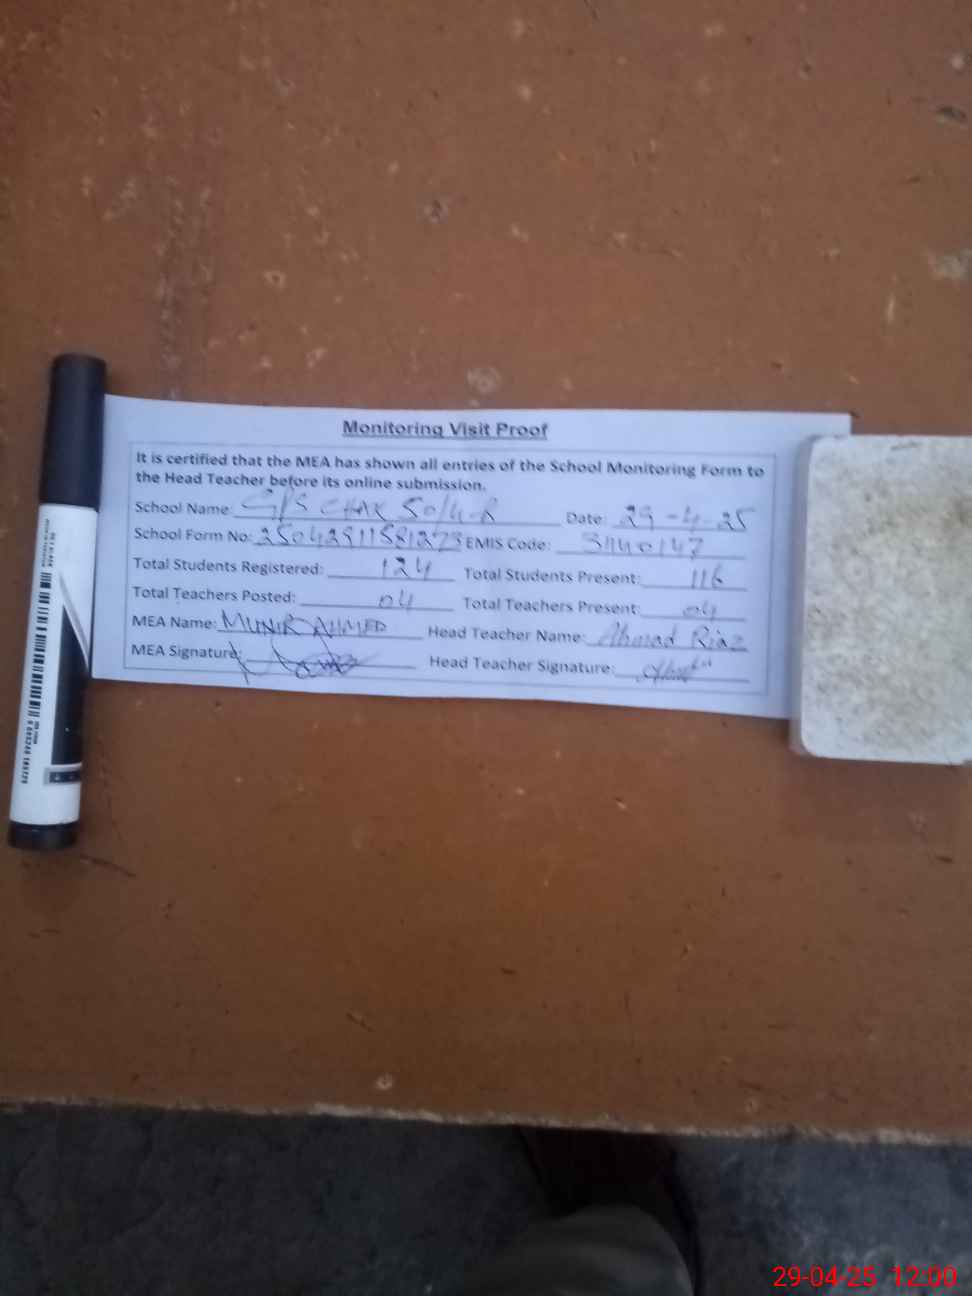 Monitoring Visit Proof
It is certified that the MEA has shown all entries of the School Monitoring Form to
the Head Teacher before its online submission.
School Name: G/S CHAK 50/4-R Date: 29-4-25
School Form No: 25042911581273 EMIS Code: 31140147
Total Students Registered: 124 Total Students Present: 116
Total Teachers Posted: 04 Total Teachers Present: 04
MEA Name: MUNIR AHMED Head Teacher Name: Ahmad Riaz
MEA Signature: Head Teacher Signature:
29-04-25 12:00